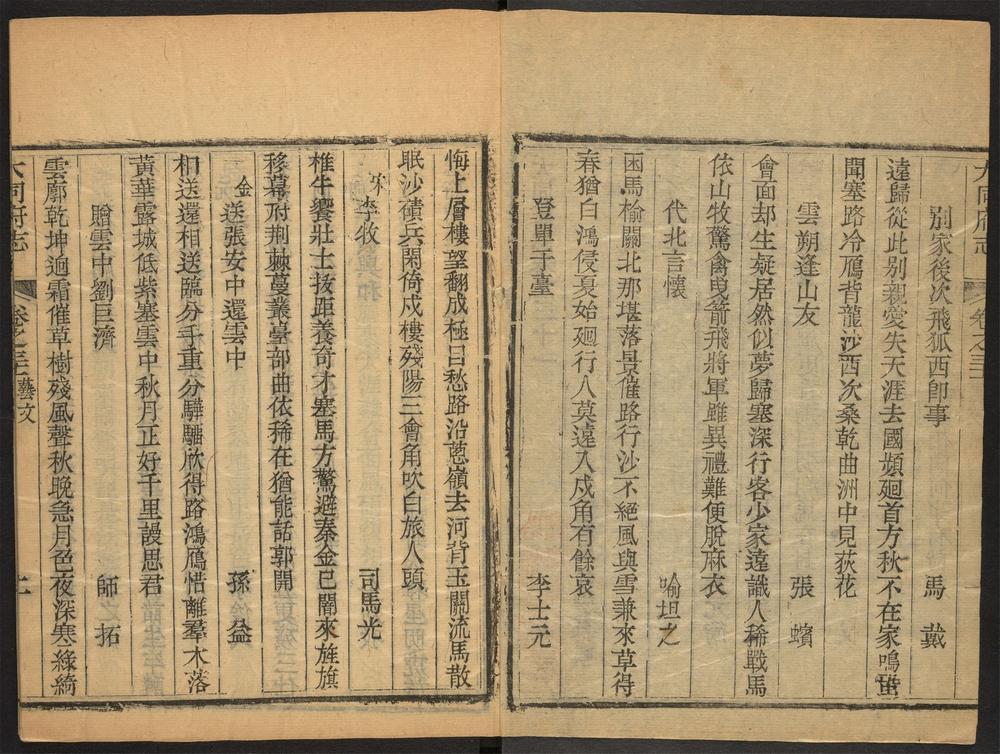 大同府志 卷之三
別家後次飛狐西卽事 馬戴
遠歸從此别親愛失天涯去國頻廻首方秋不在家鳴蛩
聞塞路冷鴈背龍沙西次桑乾曲洲中見荻花
雲朔逢山友 張蠙
會面却生疑居然似夢歸塞深行客少家遠識人稀戰馬
依山牧驚禽曳箭飛將軍雖異禮難便脫麻衣
代北言懷 喻坦之
困馬榆關北那堪落景催路行沙不絕風與雪兼來草得
春猶白鴻侵夏始廻行人莫遠入戍角有餘哀
登單于臺 李士元
悔上層樓望翻成極目愁路沿蔥嶺去河背玉關流馬散
眠沙磧兵閑倚戍樓殘陽三會角吹白旅人頭
宋 李牧 司馬光
椎牛饗壯士拔距養奇才塞馬方驚避秦金已闇來旌旗
移幕府荆棘蔓叢臺部曲依稀在猶能話郭開
金 送張安中還雲中 孫益
相送還相送臨分手重分驊騮欣得路鴻鴈惜離羣木落
黃華露城低紫塞雲中秋月正好千里謾思君
贈雲中劉巨濟 師拓
雲廓乾坤迥霜催草樹殘風聲秋晚急月色夜深寒綠綺
大同府志 卷之三 藝文 上